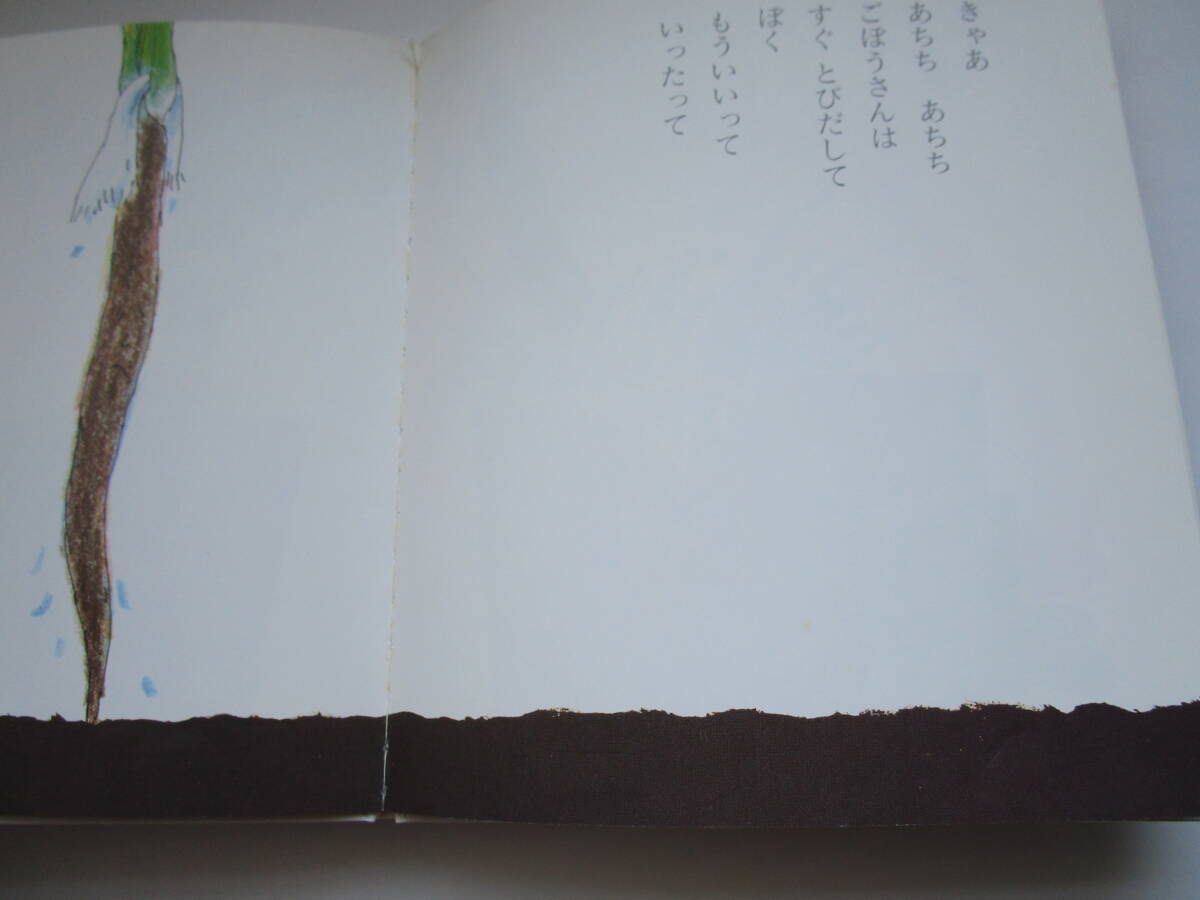 きゃあ
あちち　あちち
ごぼうさんは
すぐ とびだして
ぼく
もういいって
いったって